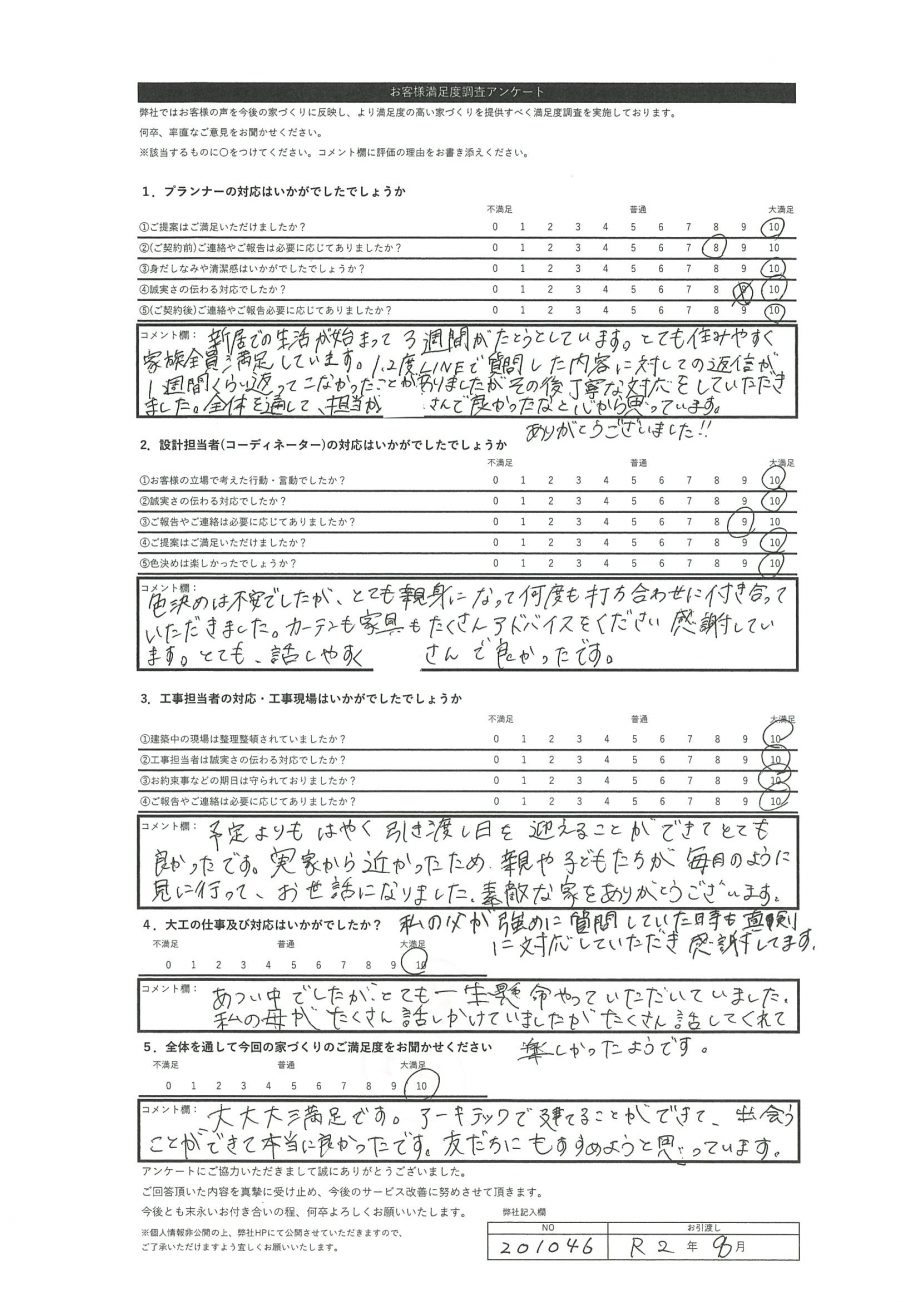 お客様満足度調査アンケート
弊社ではお客様の声を今後の家づくりに反映し、より満足度の高い家づくりを提供すべく満足度調査を実施しております。
何卒、率直なご意見をお聞かせください。
※該当するものに〇をつけてください。コメント欄に評価の理由をお書き添えください。
1．プランナーの対応はいかがでしたでしょうか
不満足 普通 大満足
①ご提案はご満足いただけましたか？ 0 1 2 3 4 5 6 7 8 9 10
②(ご契約前)ご連絡やご報告は必要に応じてありましたか？ 0 1 2 3 4 5 6 7 8 9 10
③身だしなみや清潔感はいかがでしたでしょうか？ 0 1 2 3 4 5 6 7 8 9 10
④誠実さの伝わる対応でしたか？ 0 1 2 3 4 5 6 7 8 9 10
⑤(ご契約後)ご連絡やご報告必要に応じてありましたか？ 0 1 2 3 4 5 6 7 8 9 10
コメント欄： 新居での生活が始まって3週間がたとうとしています。とても住みやすく
家族全員満足しています。1.2度LINEで質問した内容に対しての返信が
1週間くらい返ってこなかったことがありましたがその後丁寧な対応をしていただき
ました。全体を通して、担当が さんで良かったなと心から思っています。
ありがとうございました!!
2．設計担当者(コーディネーター)の対応はいかがでしたでしょうか
不満足 普通 大満足
①お客様の立場で考えた行動・言動でしたか？ 0 1 2 3 4 5 6 7 8 9 10
②誠実さの伝わる対応でしたか？ 0 1 2 3 4 5 6 7 8 9 10
③ご報告やご連絡は必要に応じてありましたか？ 0 1 2 3 4 5 6 7 8 9 10
④ご提案はご満足いただけましたか？ 0 1 2 3 4 5 6 7 8 9 10
⑤色決めは楽しかったでしょうか？ 0 1 2 3 4 5 6 7 8 9 10
コメント欄：
色決めは不安でしたが、とても親身になって何度も打ち合わせに付き合って
いただきました。カーテンも家具もたくさんアドバイスをください感謝してい
ます。とても、話しやすく さんで良かったです。
3．工事担当者の対応・工事現場はいかがでしたでしょうか
不満足 普通 大満足
①建築中の現場は整理整頓されていましたか？ 0 1 2 3 4 5 6 7 8 9 10
②工事担当者は誠実さの伝わる対応でしたか？ 0 1 2 3 4 5 6 7 8 9 10
③お約束事などの期日は守られておりましたか？ 0 1 2 3 4 5 6 7 8 9 10
④ご報告やご連絡は必要に応じてありましたか？ 0 1 2 3 4 5 6 7 8 9 10
コメント欄： 予定よりもはやく引き渡し日を迎えることができてとても
良かったです。実家から近かったため、親や子どもたちが毎日のように
見に行って、お世話になりました。素敵な家をありがとうございます。
4．大工の仕事及び対応はいかがでしたか？ 私の父が強めに質問していた時も真剣
に対応していただき感謝してます。
不満足 普通 大満足
0 1 2 3 4 5 6 7 8 9 10
コメント欄： あつい中でしたが、とても一生懸命やっていただいていました。
私の母がたくさん話しかけていましたがたくさん話してくれて
楽しかったようです。
5．全体を通して今回の家づくりのご満足度をお聞かせください
不満足 普通 大満足
0 1 2 3 4 5 6 7 8 9 10
コメント欄： 大大大満足です。アーキテックで建てることができて、出会う
ことができて本当に良かったです。友だちにもすすめようと思っています。
アンケートにご協力いただきまして誠にありがとうございました。
ご回答頂いた内容を真摯に受け止め、今後のサービス改善に努めさせて頂きます。
今後とも末永いお付き合いの程、何卒よろしくお願いいたします。 弊社記入欄
※個人情報非公開の上、弊社HPにて公開させていただきますので、
ご了承いただけますよう宜しくお願いいたします。
NO お引渡し
201046 R2年8月